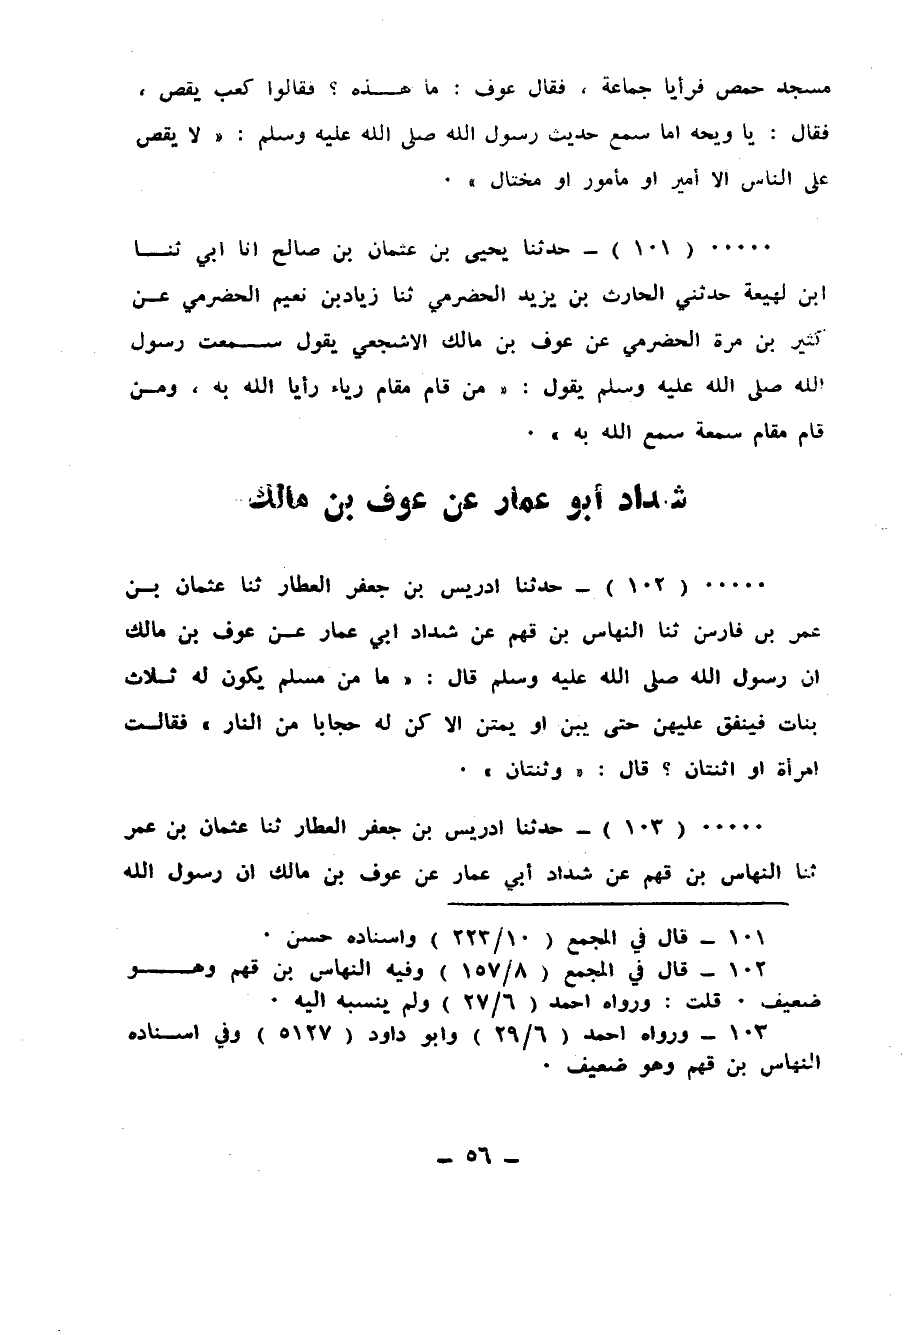 مسجد حمص فرأيا جماعة ، فقال عوف : ما هـــذه ؟ فقالوا كعب يقص ،
فقال : يا ويحه اما سمع حديث رسول الله صلى الله عليه وسلم : « لا يقص
على الناس الا أمير او مأمور او مختال » ٠
٠٠٠٠٠ ( ١٠١ ) ــ حدثنا يحيى بن عثمان بن صالح انا ابي ثنـــا
ابن لهيعة حدثني الحارث بن يزيد الحضرمي ثنا زيادبن نعيم الحضرمي عــن
كثير بن مرة الحضرمي عن عوف بن مالك الاشجعي يقول ســـمعت رسول
الله صلى الله عليه وسلم يقول : « من قام مقام رياء رأيا الله به ، ومــن
قام مقام سمعة سمع الله به » ٠
شداد أبو عمار عن عوف بن مالك
٠٠٠٠٠ ( ١٠٢ ) ــ حدثنا ادريس بن جعفر العطار ثنا عثمان بــن
عمر بن فارس ثنا النهاس بن قهم عن شداد ابي عمار عــن عوف بن مالك
ان رسول الله صلى الله عليه وسلم قال : « ما من مسلم يكون له ثــلاث
بنات فينفق عليهن حتى يبن او يمتن الا كن له حجابا من النار » فقالــت
امرأة او اثنتان ؟ قال : « وثنتان » ٠
٠٠٠٠٠ ( ١٠٣ ) ــ حدثنا ادريس بن جعفر العطار ثنا عثمان بن عمر
ثنا النهاس بن قهم عن شداد أبي عمار عن عوف بن مالك ان رسول الله
١٠١ ــ قال في المجمع ( ٢٢٣/١٠ ) واسناده حسن ٠
١٠٢ ــ قال في المجمع ( ١٥٧/٨ ) وفيه النهاس بن قهم وهـــو
ضعيف ٠ قلت : ورواه احمد ( ٢٧/٦ ) ولم ينسبه اليه ٠
١٠٣ ــ ورواه احمد ( ٢٩/٦ ) وابو داود ( ٥١٢٧ ) وفي اســناده
النهاس بن قهم وهو ضعيف ٠
ــ ٥٦ ــ